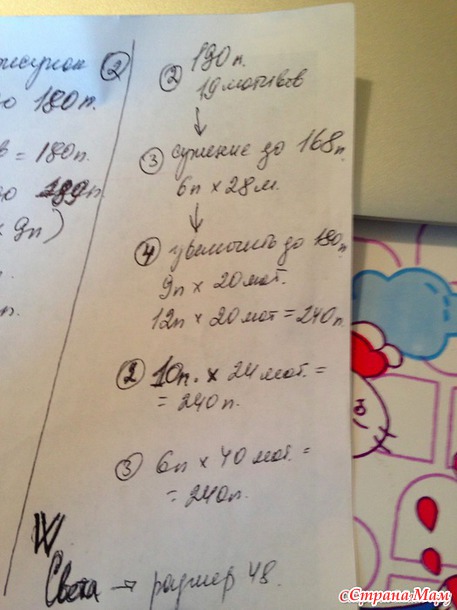 рисунок ②
180п.
= 180п.
× 9п)
② 190п.
19 мотивов
↓
③ сужение до 168п.
6п × 28м.
↓
④ увеличить до 180п.
9п × 20мот.
12п × 20мот = 240п.
② 10п. × 24мот. =
= 240п.
③ 6п × 40мот. =
= 240п.
Света → размер 48.
©Страна Мам